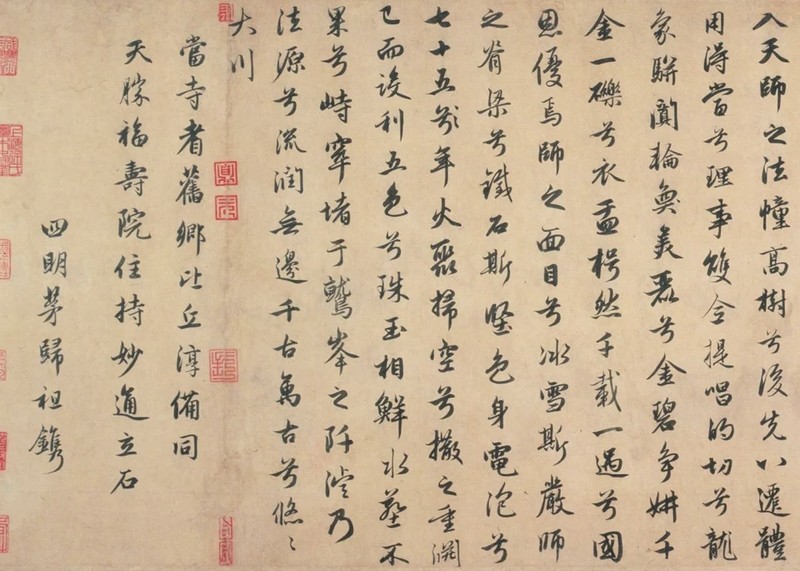 入天師之法幢高樹兮後先八遷體
用淂當兮理事雙全提唱的切兮龍
象駢闐輪奐美麗兮金碧爭妍千
金一礫兮衣盂楞然千載一遇兮國
恩優焉師之面目兮冰雪斯嚴師
之脊梁兮鐵石斯堅色身電泡兮
七十五年火聚掃空兮撒之重淵
已而設利五色兮珠玉相鮮水葬不
果兮峙窣堵于鷲峯之阡滹乃
法源兮流潤無邊千古萬古兮悠〻
大川
當寺者舊鄉比丘淳備同
天勝福壽院住持妙通立石
四明茅歸祖鐫